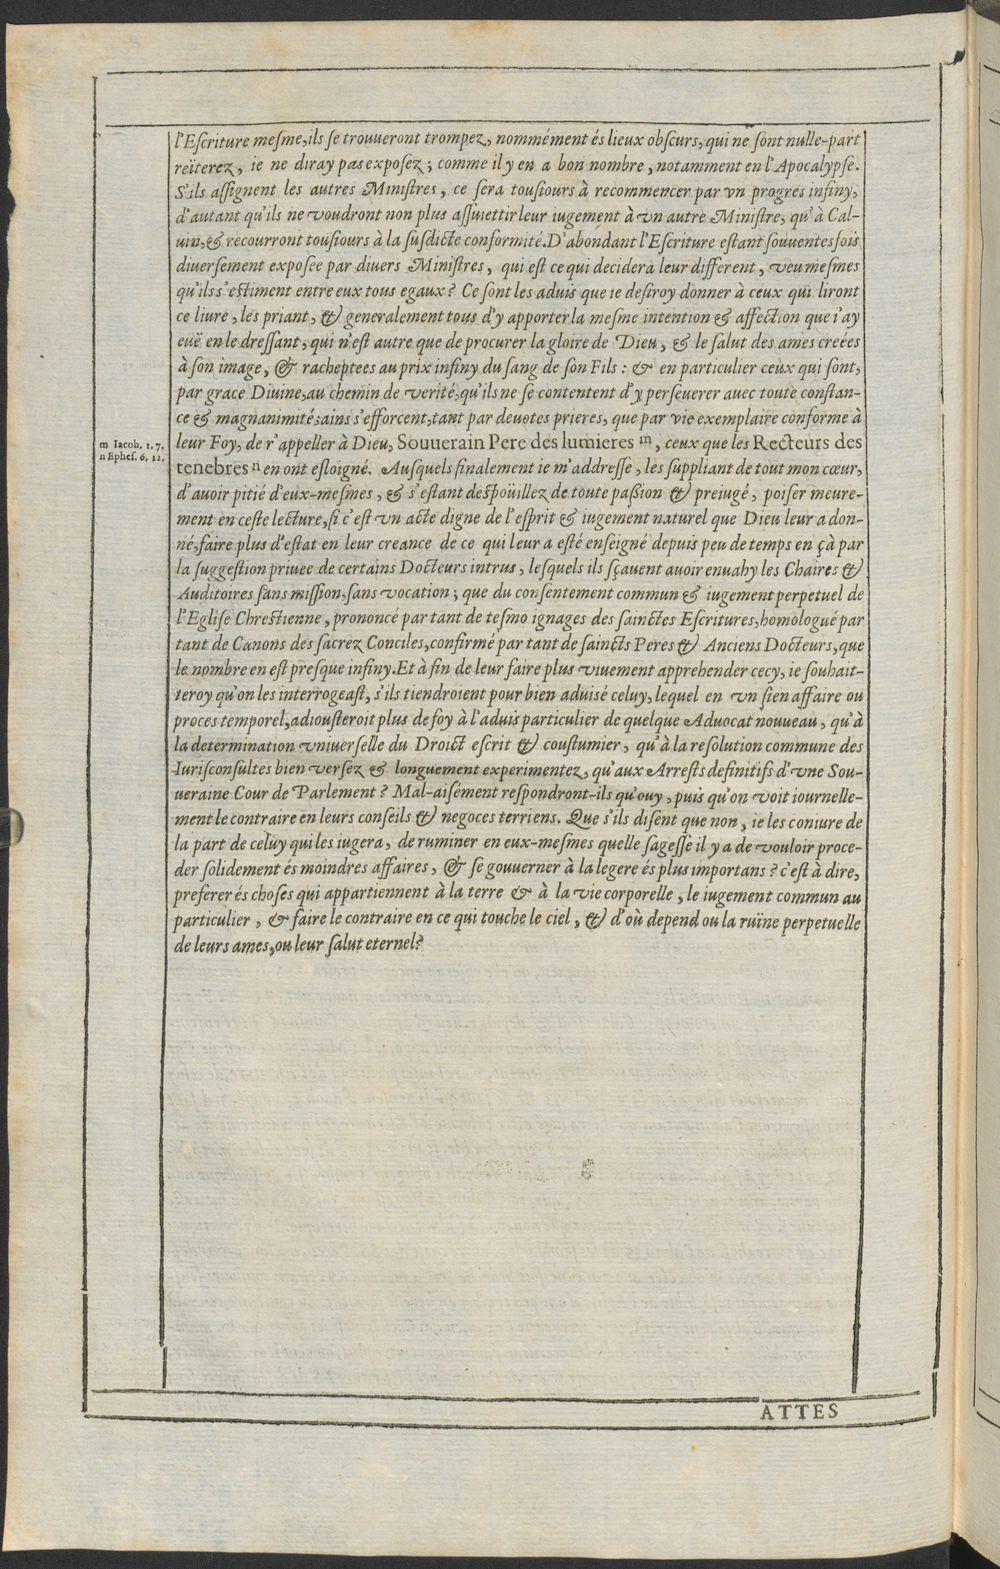 l'Eſcriture meſme, ils ſe trouueront trompez, nommément és lieux obſcurs, qui ne ſont nulle-part
reïterez, ie ne diray pas expoſez; comme il y en a bon nombre, notamment en l'Apocalypſe.
S'ils aſſignent les autres Miniſtres, ce ſera touſiours à recommencer par vn progres infiny,
d'autant qu'ils ne voudront non plus aſſuiettir leur iugement à vn autre Miniſtre, qu'à Cal-
uin, & recourront touſiours à la ſuſdicte conformité. D'abondant l'Eſcriture eſtant ſouuentesfois
diuerſement expoſee par diuers Miniſtres, qui eſt ce qui decidera leur different, veu meſmes
qu'ils s'eſtiment entre eux tous egaux? Ce ſont les aduis que ie deſiroy donner à ceux qui liront
ce liure, les priant, & generalement tous d'y apporter la meſme intention & affection que i'ay
euë en le dreſſant, qui n'eſt autre que de procurer la gloire de Dieu, & le ſalut des ames creées
à ſon image, & racheptees au prix infiny du ſang de ſon Fils: & en particulier ceux qui ſont,
par grace Diuine, au chemin de verité, qu'ils ne ſe contentent d'y perſeuerer auec toute conſtan-
ce & magnanimité, ains s'efforcent, tant par deuotes prieres, que par vie exemplaire conforme à
m Iacob. 1. 7.
n Epheſ. 6. 12.
leur Foy, de r'appeller à Dieu, Souuerain Pere des lumieres m, ceux que les Recteurs des
tenebres n en ont eſloigné. Auſquels finalement ie m'addreſſe, les ſuppliant de tout mon cœur,
d'auoir pitié d'eux-meſmes, & s'eſtant deſpoüillez de toute paſsion & preiugé, poiſer meure-
ment en ceſte lecture, ſi c'eſt vn acte digne de l'eſprit & iugement naturel que Dieu leur a don-
né, faire plus d'eſtat en leur creance de ce qui leur a eſté enſeigné depuis peu de temps en çà par
la ſuggeſtion priuee de certains Docteurs intrus, leſquels ils ſçauent auoir enuahy les Chaires &
Auditoires ſans miſſion, ſans vocation; que du conſentement commun & iugement perpetuel de
l'Egliſe Chreſtienne, prononcé par tant de teſmo ignages des ſainctes Eſcritures, homologué par
tant de Canons des ſacrez Conciles, confirmé par tant de ſaincts Peres & Anciens Docteurs, que
le nombre en eſt preſque infiny. Et à fin de leur faire plus viuement apprehender cecy, ie ſouhait-
teroy qu'on les interrogeaſt, s'ils tiendroient pour bien aduisé celuy, lequel en vn ſien affaire ou
proces temporel, adiouſteroit plus de foy à l'aduis particulier de quelque Aduocat nouueau, qu'à
la determination vniuerſelle du Droict eſcrit & couſtumier, qu'à la reſolution commune des
Iuriſconſultes bien verſez & longuement experimentez, qu'aux Arreſts definitifs d'vne Sou-
ueraine Cour de Parlement? Mal-aiſément reſpondront-ils qu'ouy, puis qu'on voit iournelle-
ment le contraire en leurs conſeils & negoces terriens. Que s'ils diſent que non, ie les coniure de
la part de celuy qui les iugera, de ruminer en eux-meſmes quelle ſageſſe il y a de vouloir proce-
der ſolidement és moindres affaires, & ſe gouuerner à la legere és plus importans? c'eſt à dire,
preferer és choſes qui appartiennent à la terre & à la vie corporelle, le iugement commun au
particulier, & faire le contraire en ce qui touche le ciel, & d'où depend ou la ruïne perpetuelle
de leurs ames, ou leur ſalut eternel?
ATTES